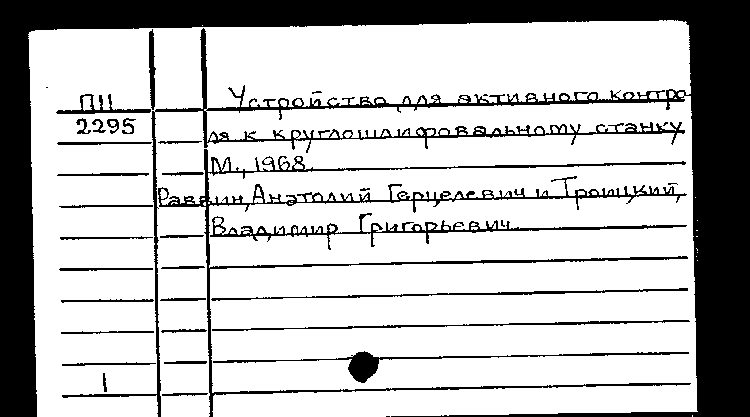 П11 Устройство для активного контро-
2295 ля к круглошлифовальному станку
М., 1968
Раввин, Анатолий Герцелевич и Троицкий,
Владимир Григорьевич
1